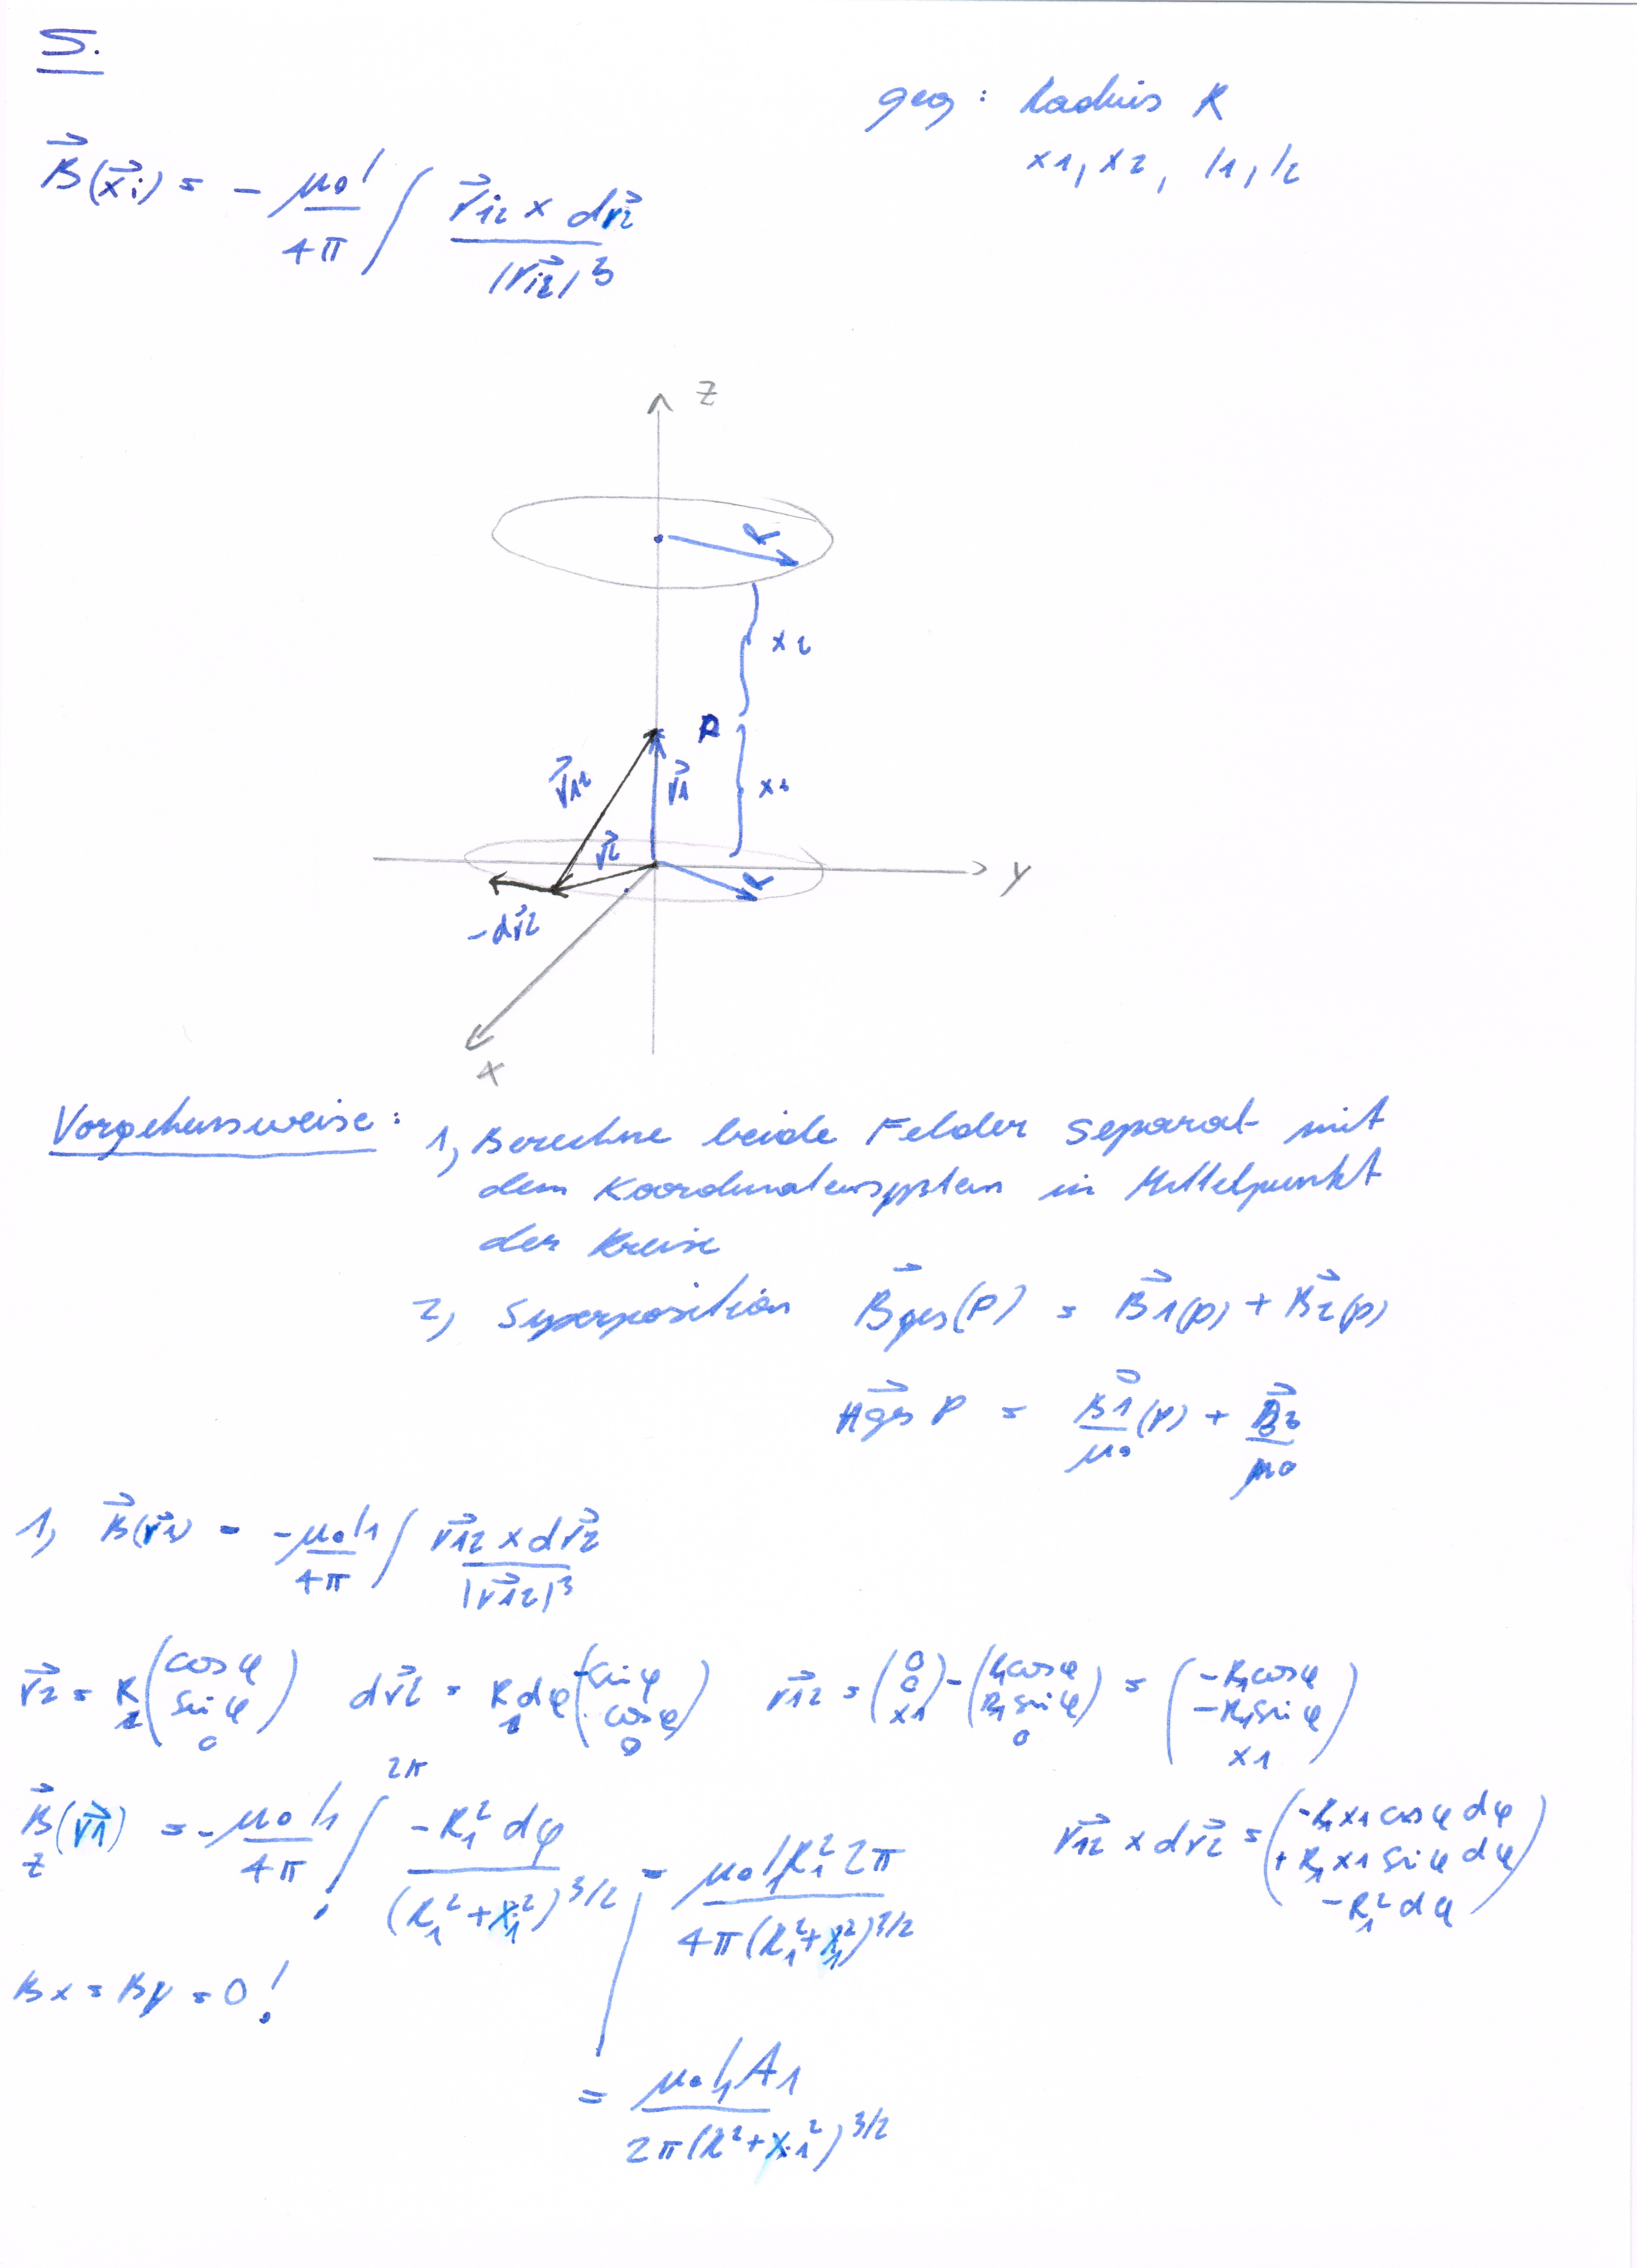 5.
geg: Radius R
x1, x2, I1, I2
B⃗(x⃗i) = - μ0 I / 4π ∫ r⃗12 x dr⃗2 / |r⃗12|³
z
R
x2
P
r⃗12
r⃗1
x1
r⃗2
y
R
-dr⃗2
x
Vorgehensweise: 1, Berechne beide Felder separat mit
dem Koordinatensystem in Mittelpunkt
der Kreise
2, Superposition B⃗ges(P) = B⃗1(p) + B⃗2(p)
H⃗ges P = B⃗1/μ0 (P) + B⃗2/μ0
1, B⃗(r⃗1) = -μ0 I1 / 4π ∫ r⃗12 x dr⃗2 / |r⃗12|³
r⃗2 = R1 (cos φ, sin φ, 0) dr⃗2 = R1 dφ (-sin φ, cos φ, 0) r⃗12 = (0, 0, x1) - (R1 cos φ, R1 sin φ, 0) = (-R1 cos φ, -R1 sin φ, x1)
B⃗z(r⃗1) = - μ0 I1 / 4π ∫ 2π -R1² dφ / (R1² + x1²)^3/2 = μ0 I1 R1² 2π / 4π (R1² + x1²)^3/2
r⃗12 x dr⃗2 = (-R1 x1 cos φ dφ, + R1 x1 sin φ dφ, -R1² dφ)
Bx = By = 0!
= μ0 I1 A1 / 2π (R² + x1²)^3/2